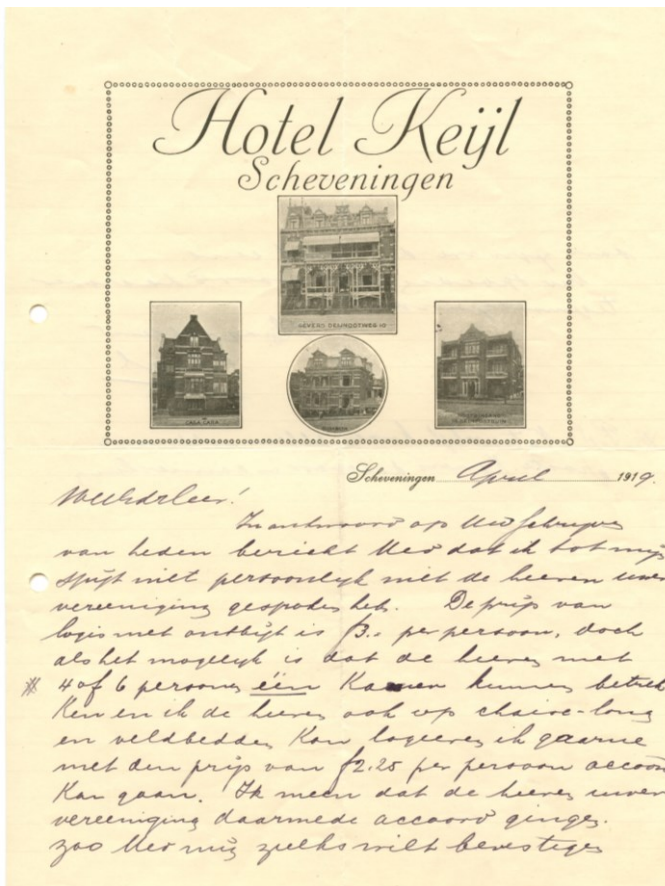 Hotel Keijl
Scheveningen
GEVERS DEIJNOOTWEG 10
CASA CARA
Scheveningen April 1919.
WelEd. Heer!
In antwoord op Uw schrijven
van heden bericht Uw dat ik tot mijn
spijt niet persoonlijk met de heeren uwer
vereeniging gesproken heb. De prijs van
logis met ontbijt is f3.- per persoon, doch
als het mogelijk is dat de heeren met
# 4 of 6 persoonen één Kamer kunnen betrek
ken en ik de heeren ook op chaise-long
en veldbedden kan logieren ik gaarne
met den prijs van f2.25 per persoon accoord
kan gaan. Ik meen dat de heeren uwer
vereeniging daarmede accoord gingen.
zoo Uw mij zulks wilt bevestigen